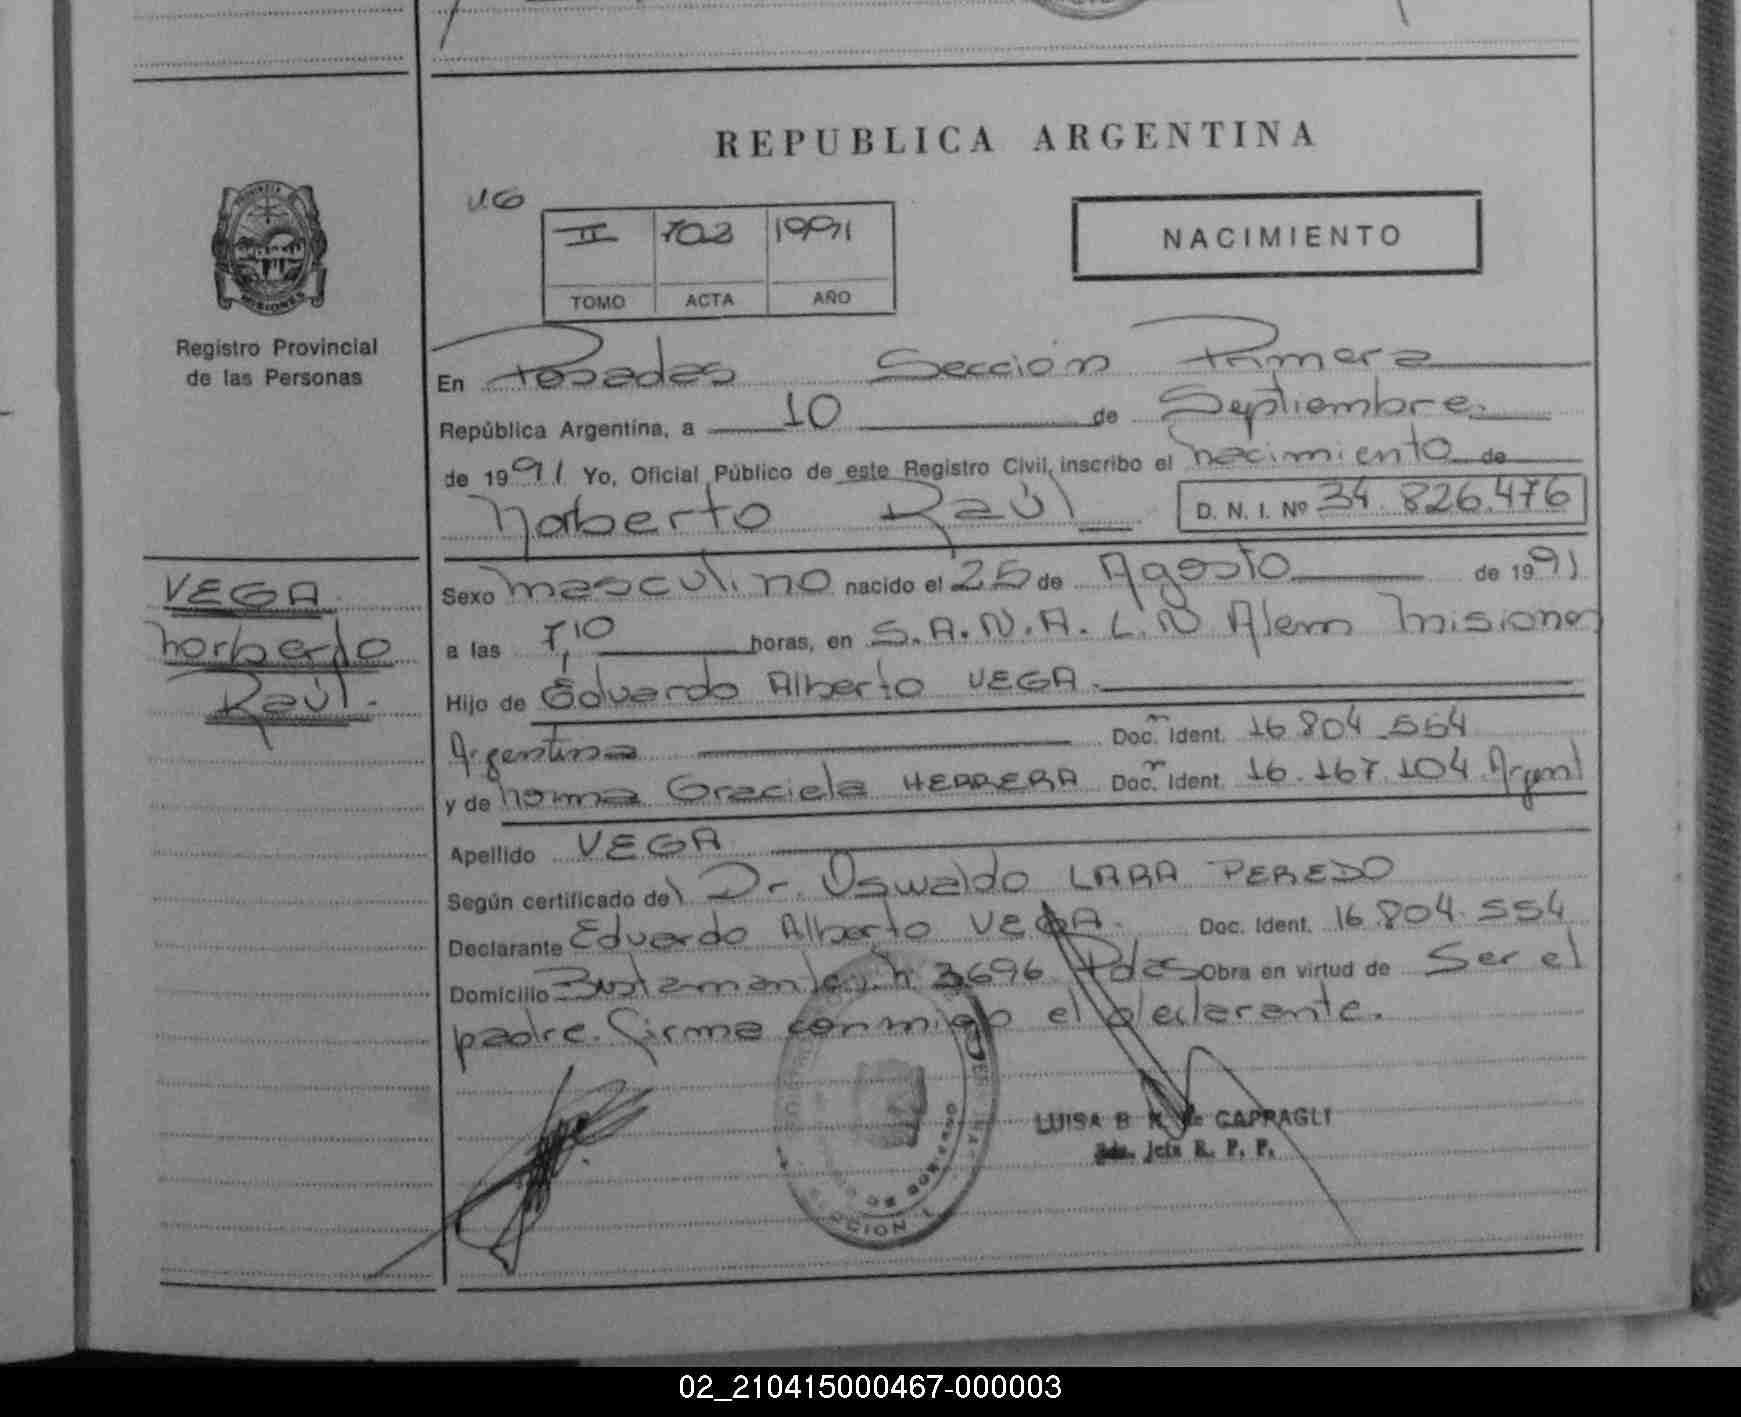 REPUBLICA ARGENTINA
II 703 1991
TOMO ACTA AÑO
NACIMIENTO
Registro Provincial
de las Personas
En Posadas Sección Primera
República Argentina, a 10 de Septiembre
de 1991 Yo, Oficial Público de este Registro Civil, inscribo el nacimiento de
Norberto Raúl D. N. I. Nº 34.826.476
VEGA
Norberto
Raúl.
Sexo masculino nacido el 25 de Agosto de 1991
a las 7,10 horas, en S.A.N.A. L.N Alem Misiones
Hijo de Eduardo Alberto VEGA.
Argentina Doc. Ident. 16.804.554
y de Norma Graciela HERRERA Doc. Ident. 16.167.104. Argent
Apellido VEGA
Según certificado del Dr. Oswaldo LARA PEREDO
Declarante Eduardo Alberto VEGA. Doc. Ident. 16.804.554
Domicilio Bustamante n 3696 Pdas Obra en virtud de Ser el
padre. Firma conmigo el declarante.
LUISA B de CAPRAGLI
Jefe R. P. P.
SECCION 1
02_210415000467-000003